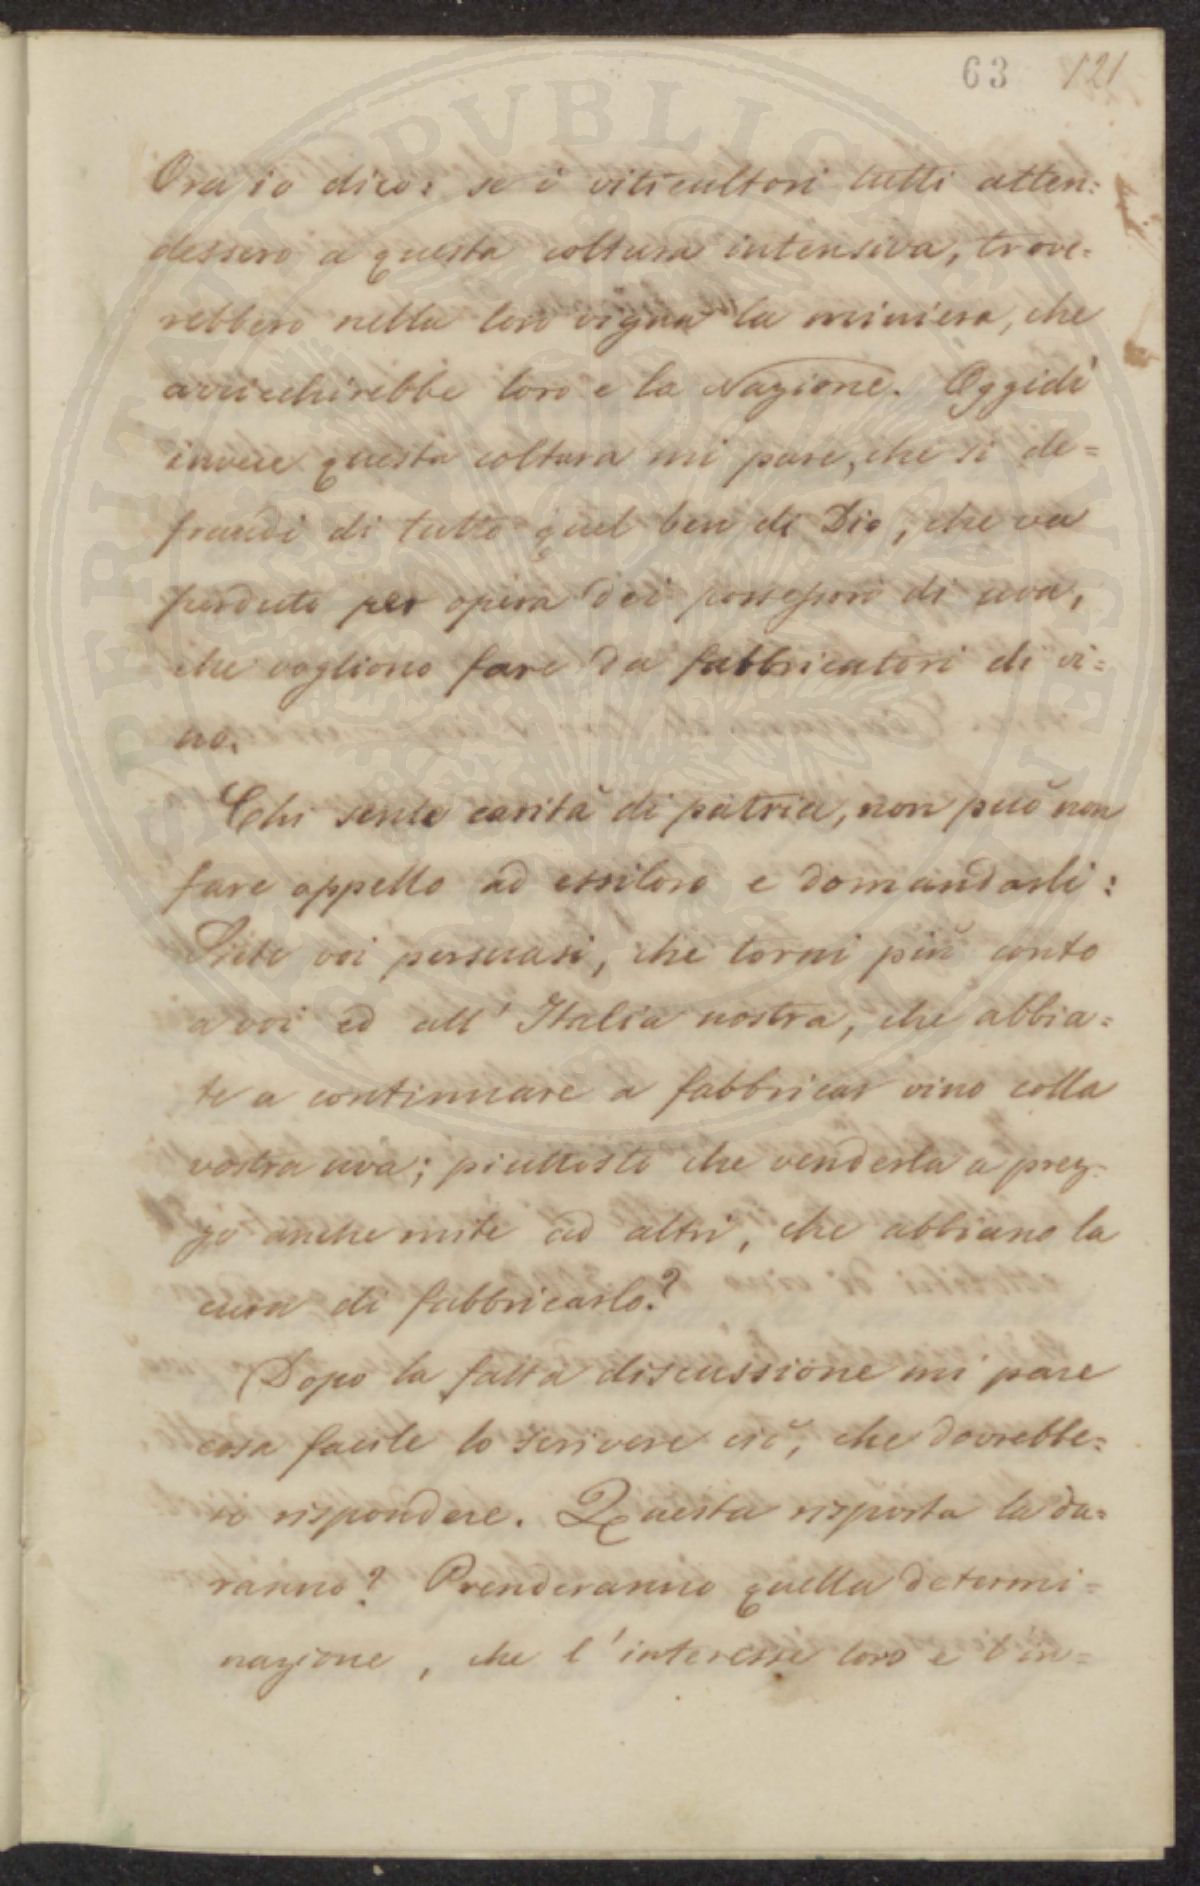 63 121
Ora io dico: se i viticultori tutti atten:
dessero a questa coltura intensiva, trove-
rebbero nella loro vigna la miniera, che
arricchirebbe loro e la Nazione. Oggidì
invece questa coltura mi pare, che si de=
fraudi di tutto quel ben di Dio, che va
perduto per opera dei possessori di uva,
che vogliono fare da fabbricatori di vi=
no.
Chi sente carità di patria, non può non
fare appello ad essiloro e domandarli:
Siete voi persuasi, che torni più conto
a voi ed all' Italia nostra, che abbia=
te a continuare a fabbricar vino colla
vostra uva; piuttosto che venderla a prez-
zo anche mite ad altri, che abbiano la
cura di fabbricarlo?
Dopo la fatta discussione mi pare
cosa facile lo scrivere ciò, che dovrebbe=
si rispondere. Questa risposta la da=
ranno? Prenderanno quella determi=
nazione, che l'interesse loro e l'in=